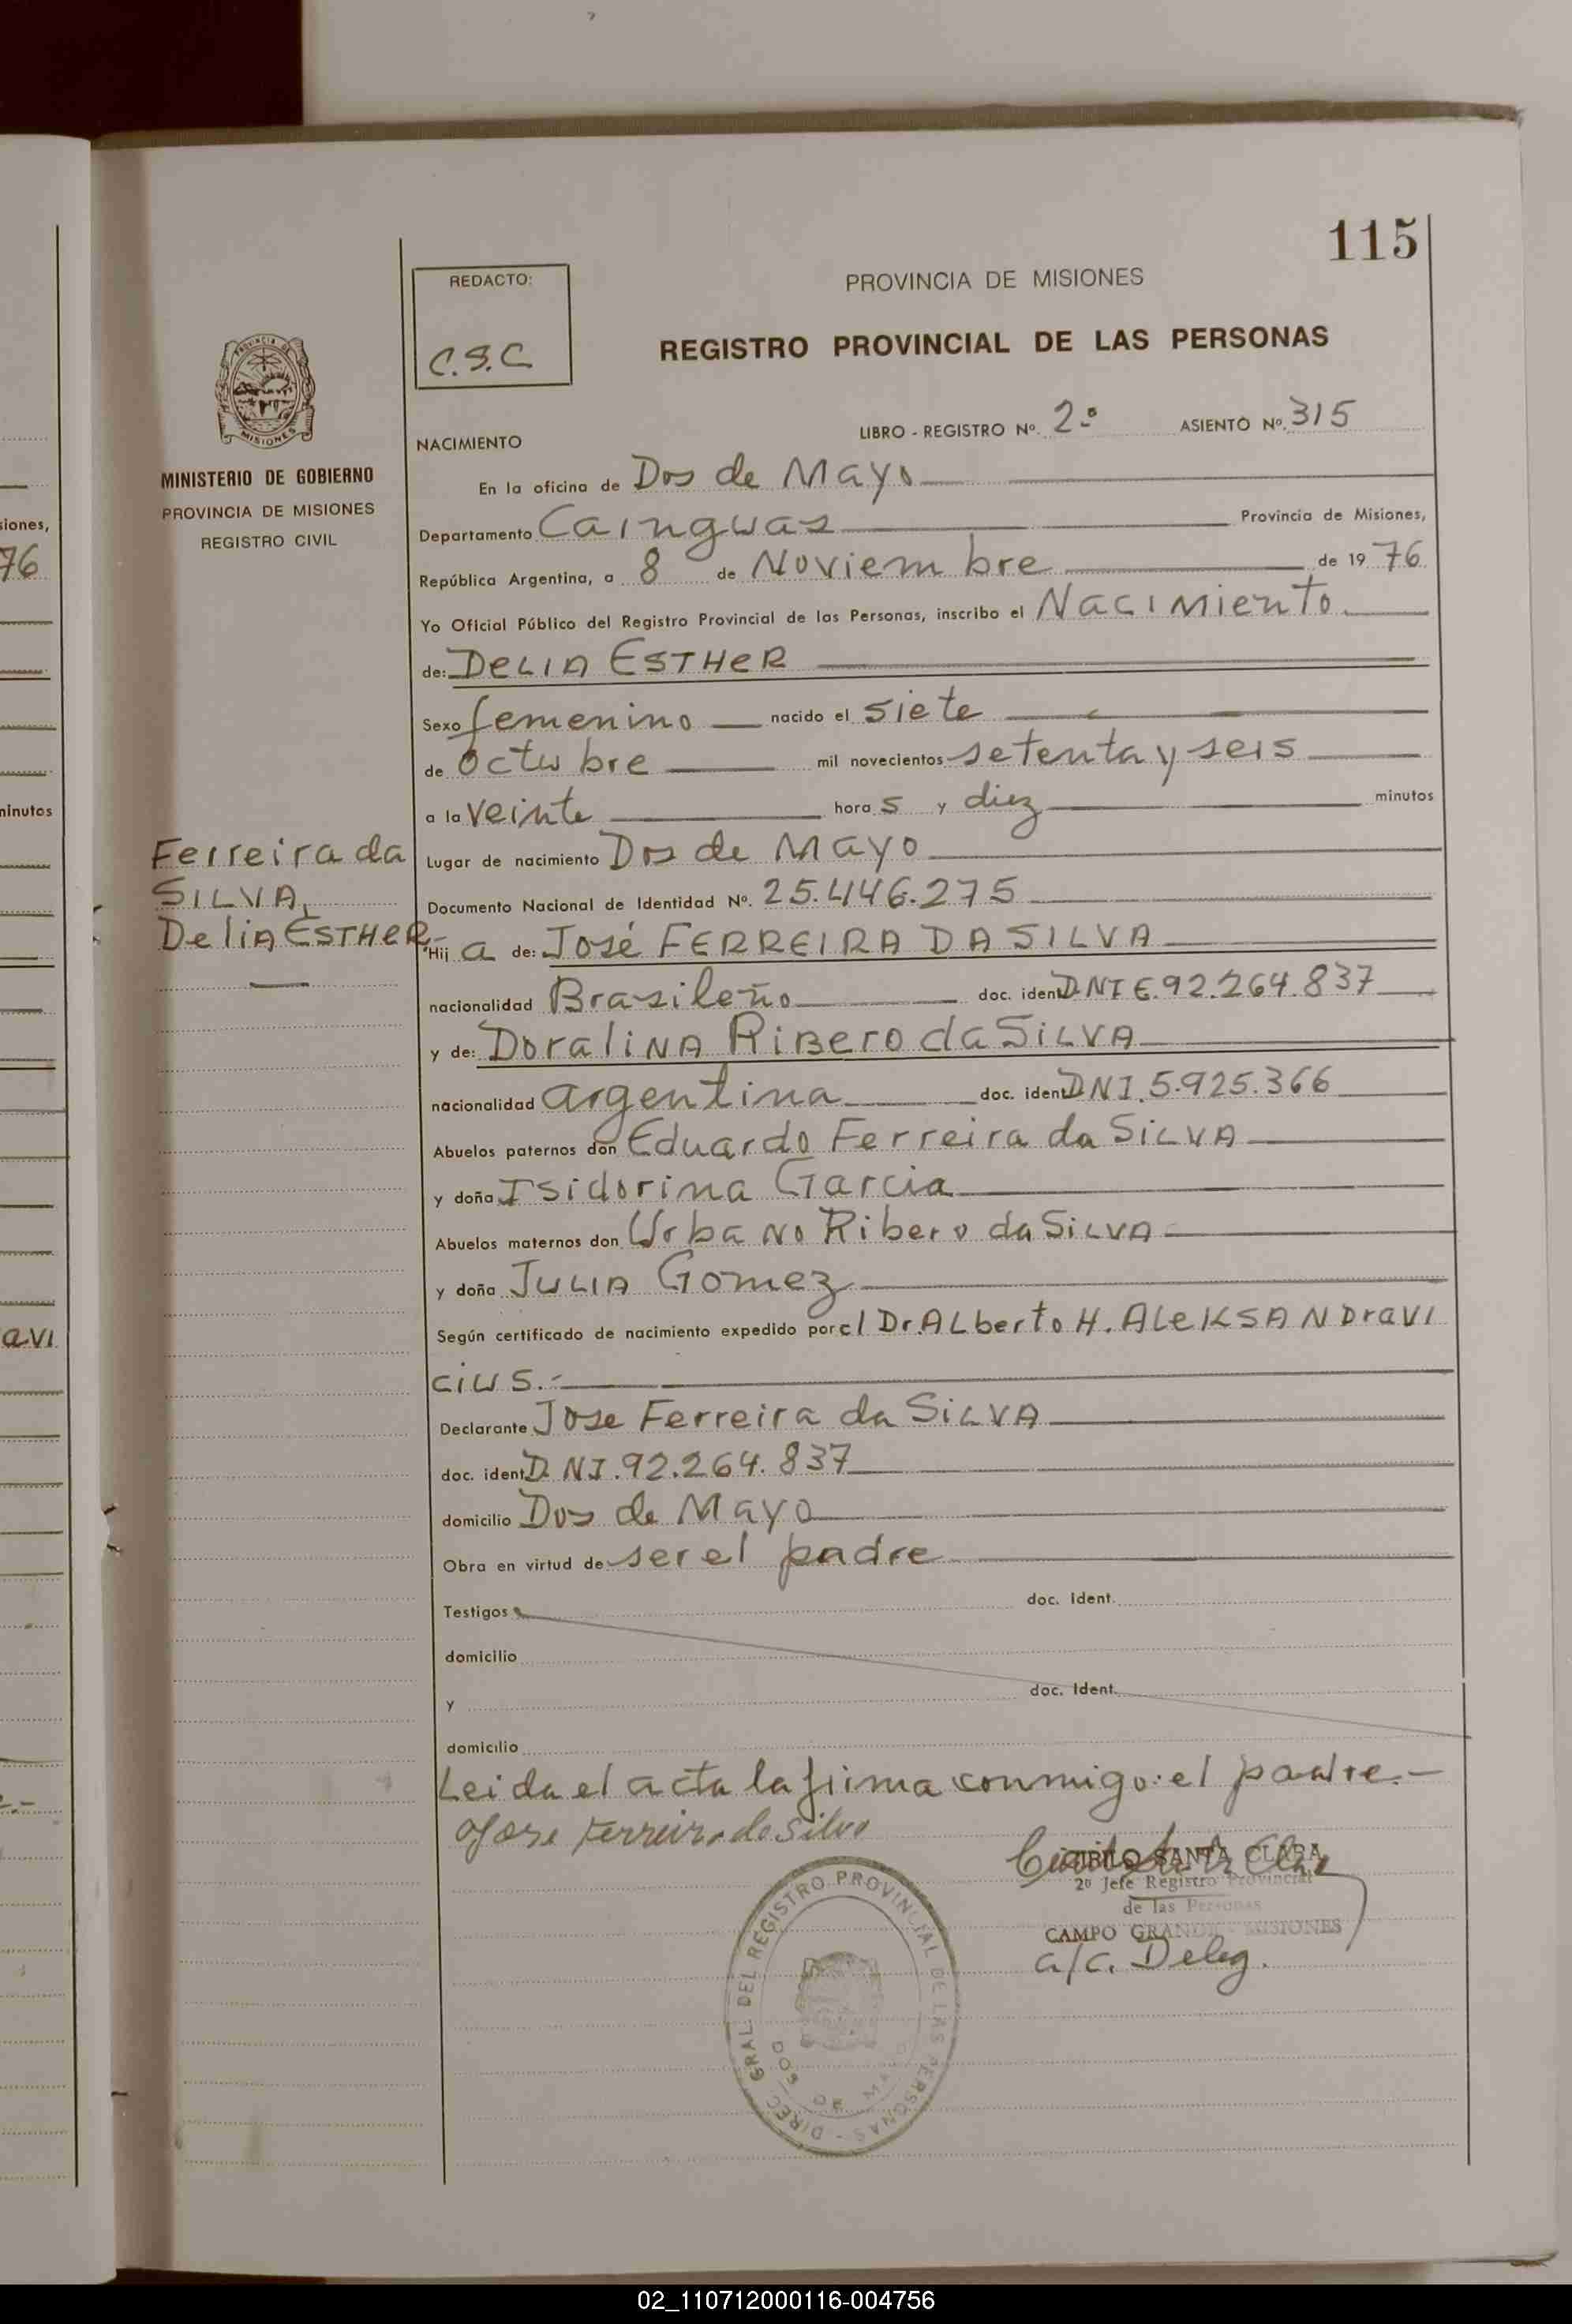 115
REDACTO:
C.S.C
PROVINCIA DE MISIONES
REGISTRO PROVINCIAL DE LAS PERSONAS
MISIONES
MINISTERIO DE GOBIERNO
PROVINCIA DE MISIONES
REGISTRO CIVIL
NACIMIENTO
LIBRO - REGISTRO Nº. 2º ASIENTO Nº. 315
En la oficina de Dos de Mayo
Departamento Cainguas Provincia de Misiones,
siones,
República Argentina, a 8 de Noviembre de 19 76
76
Yo Oficial Público del Registro Provincial de las Personas, inscribo el Nacimiento
de: DELIA ESTHER
Sexo femenino nacido el siete
de Octubre mil novecientos setenta y seis
a la veinte hora s y diez minutos
minutos
Ferreira da
SILVA,
Delia ESTHER-
Lugar de nacimiento Dos de Mayo
Documento Nacional de Identidad Nº. 25.446.275
Hij a de: José FERREIRA DA SILVA
nacionalidad Brasileño doc. ident DNI E.92.264.837
y de: Doralina Ribero da SILVA
nacionalidad argentina doc. ident DNI.5.925.366
Abuelos paternos don Eduardo Ferreira da SILVA
y doña Isidorina Garcia
Abuelos maternos don Urbano Ribero da SILVA
y doña JULIA Gomez
Según certificado de nacimiento expedido por el Dr. ALberto H. ALeKSANDravi
avi
cius.-
Declarante Jose Ferreira da SILVA
doc. ident D.NI.92.264.837
domicilio Dos de Mayo
Obra en virtud de ser el padre
Testigos doc. Ident.
domicilio
y doc. Ident.
domicilio
Leida el acta la firma conmigo: el padre.-
Jose Ferreira da Silva
CIRILO SANTA CLARA
2º Jefe Registro Provincial
de las Personas
CAMPO GRANDE - MISIONES
a/c. Deleg.
DIREC. GRAL. DEL REGISTRO PROVINCIAL DE LAS PERSONAS -
DOS DE MAYO
02_110712000116-004756